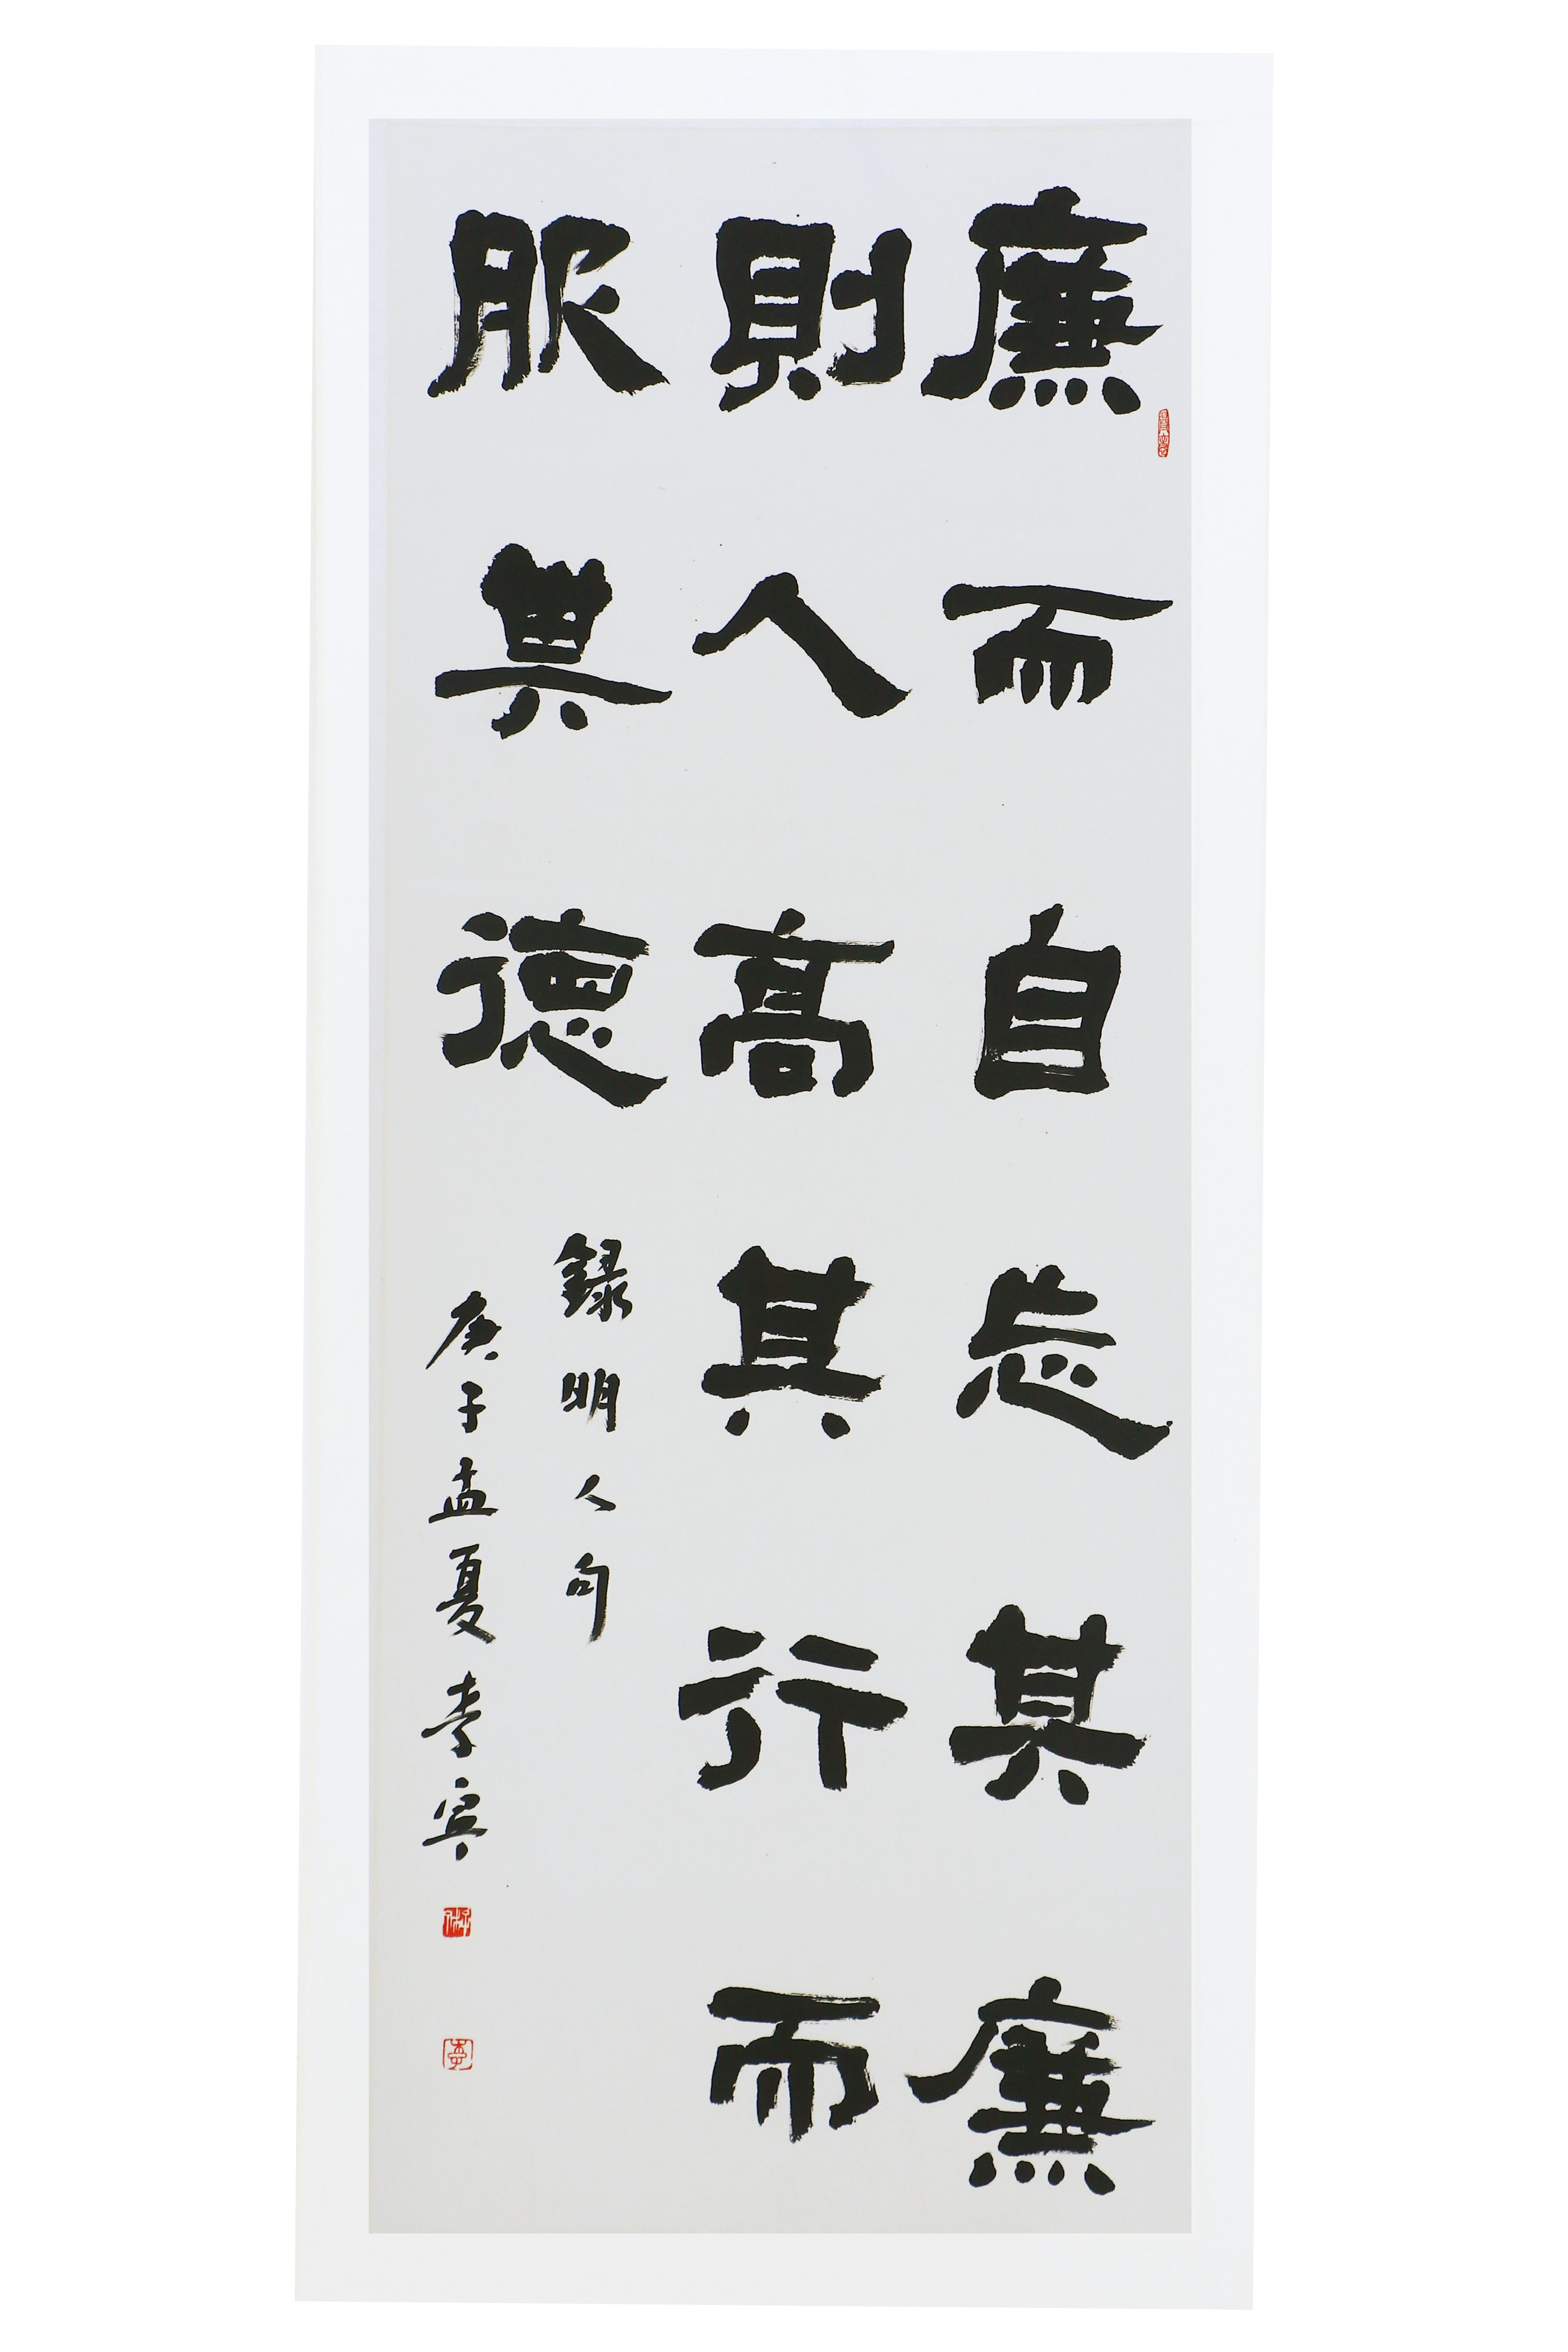 廉而自忘其廉
則人高其行而
服其德
錄明人句
庚子孟夏李賓